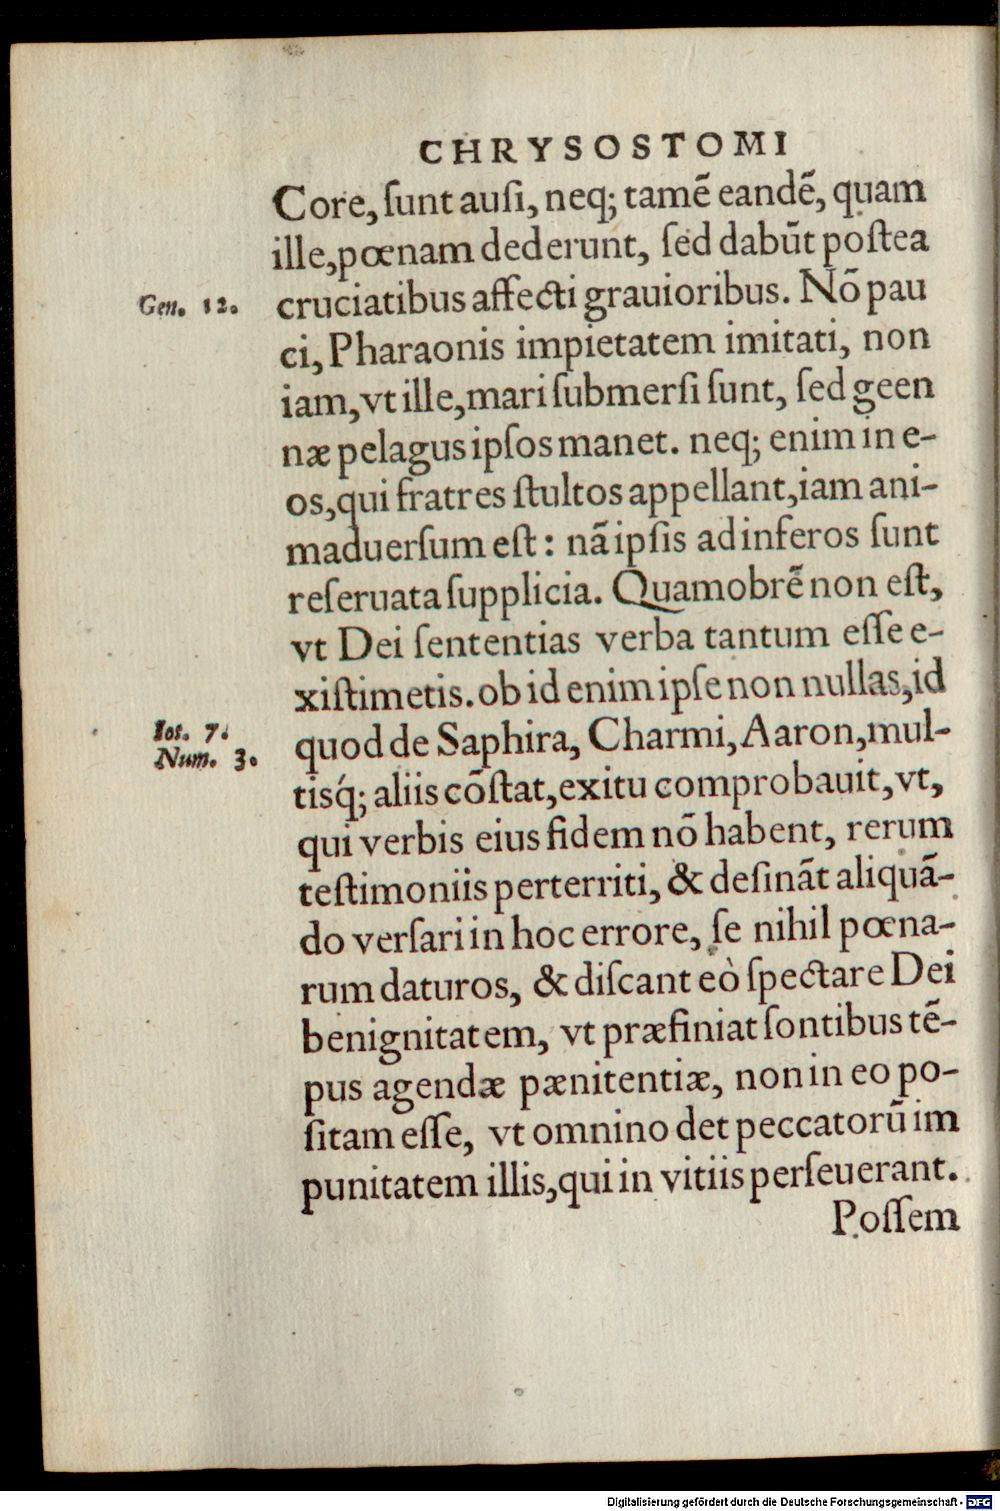 CHRYSOSTOMI
Core, ſunt auſi, neq; tamē eandē, quam
ille, pœnam dederunt, ſed dabūt poſtea
Gen. 12.
cruciatibus affecti grauioribus. Nō pau
ci, Pharaonis impietatem imitati, non
iam, vt ille, mari ſubmerſi ſunt, ſed geen
næ pelagus ipſos manet. neq; enim in e-
os, qui fratres ſtultos appellant, iam ani-
maduerſum eſt: nā ipſis ad inferos ſunt
reſeruata ſupplicia. Quamobrē non eſt,
vt Dei ſententias verba tantum eſſe e-
xiſtimetis. ob id enim ipſe non nullas, id
Ioſ. 7.
quod de Saphira, Charmi, Aaron, mul-
Num. 3.
tisq́; aliis cōſtat, exitu comprobauit, vt,
qui verbis eius fidem nō habent, rerum
teſtimoniis perterriti, & deſināt aliquā-
do verſari in hoc errore, ſe nihil pœna-
rum daturos, & diſcant eò ſpectare Dei
benignitatem, vt præfiniat ſontibus tē-
pus agendæ pænitentiæ, non in eo po-
ſitam eſſe, vt omnino det peccatorū im
punitatem illis, qui in vitiis perſeuerant.
Poſſem
Digitalisierung gefördert durch die Deutsche Forschungsgemeinschaft - DFG